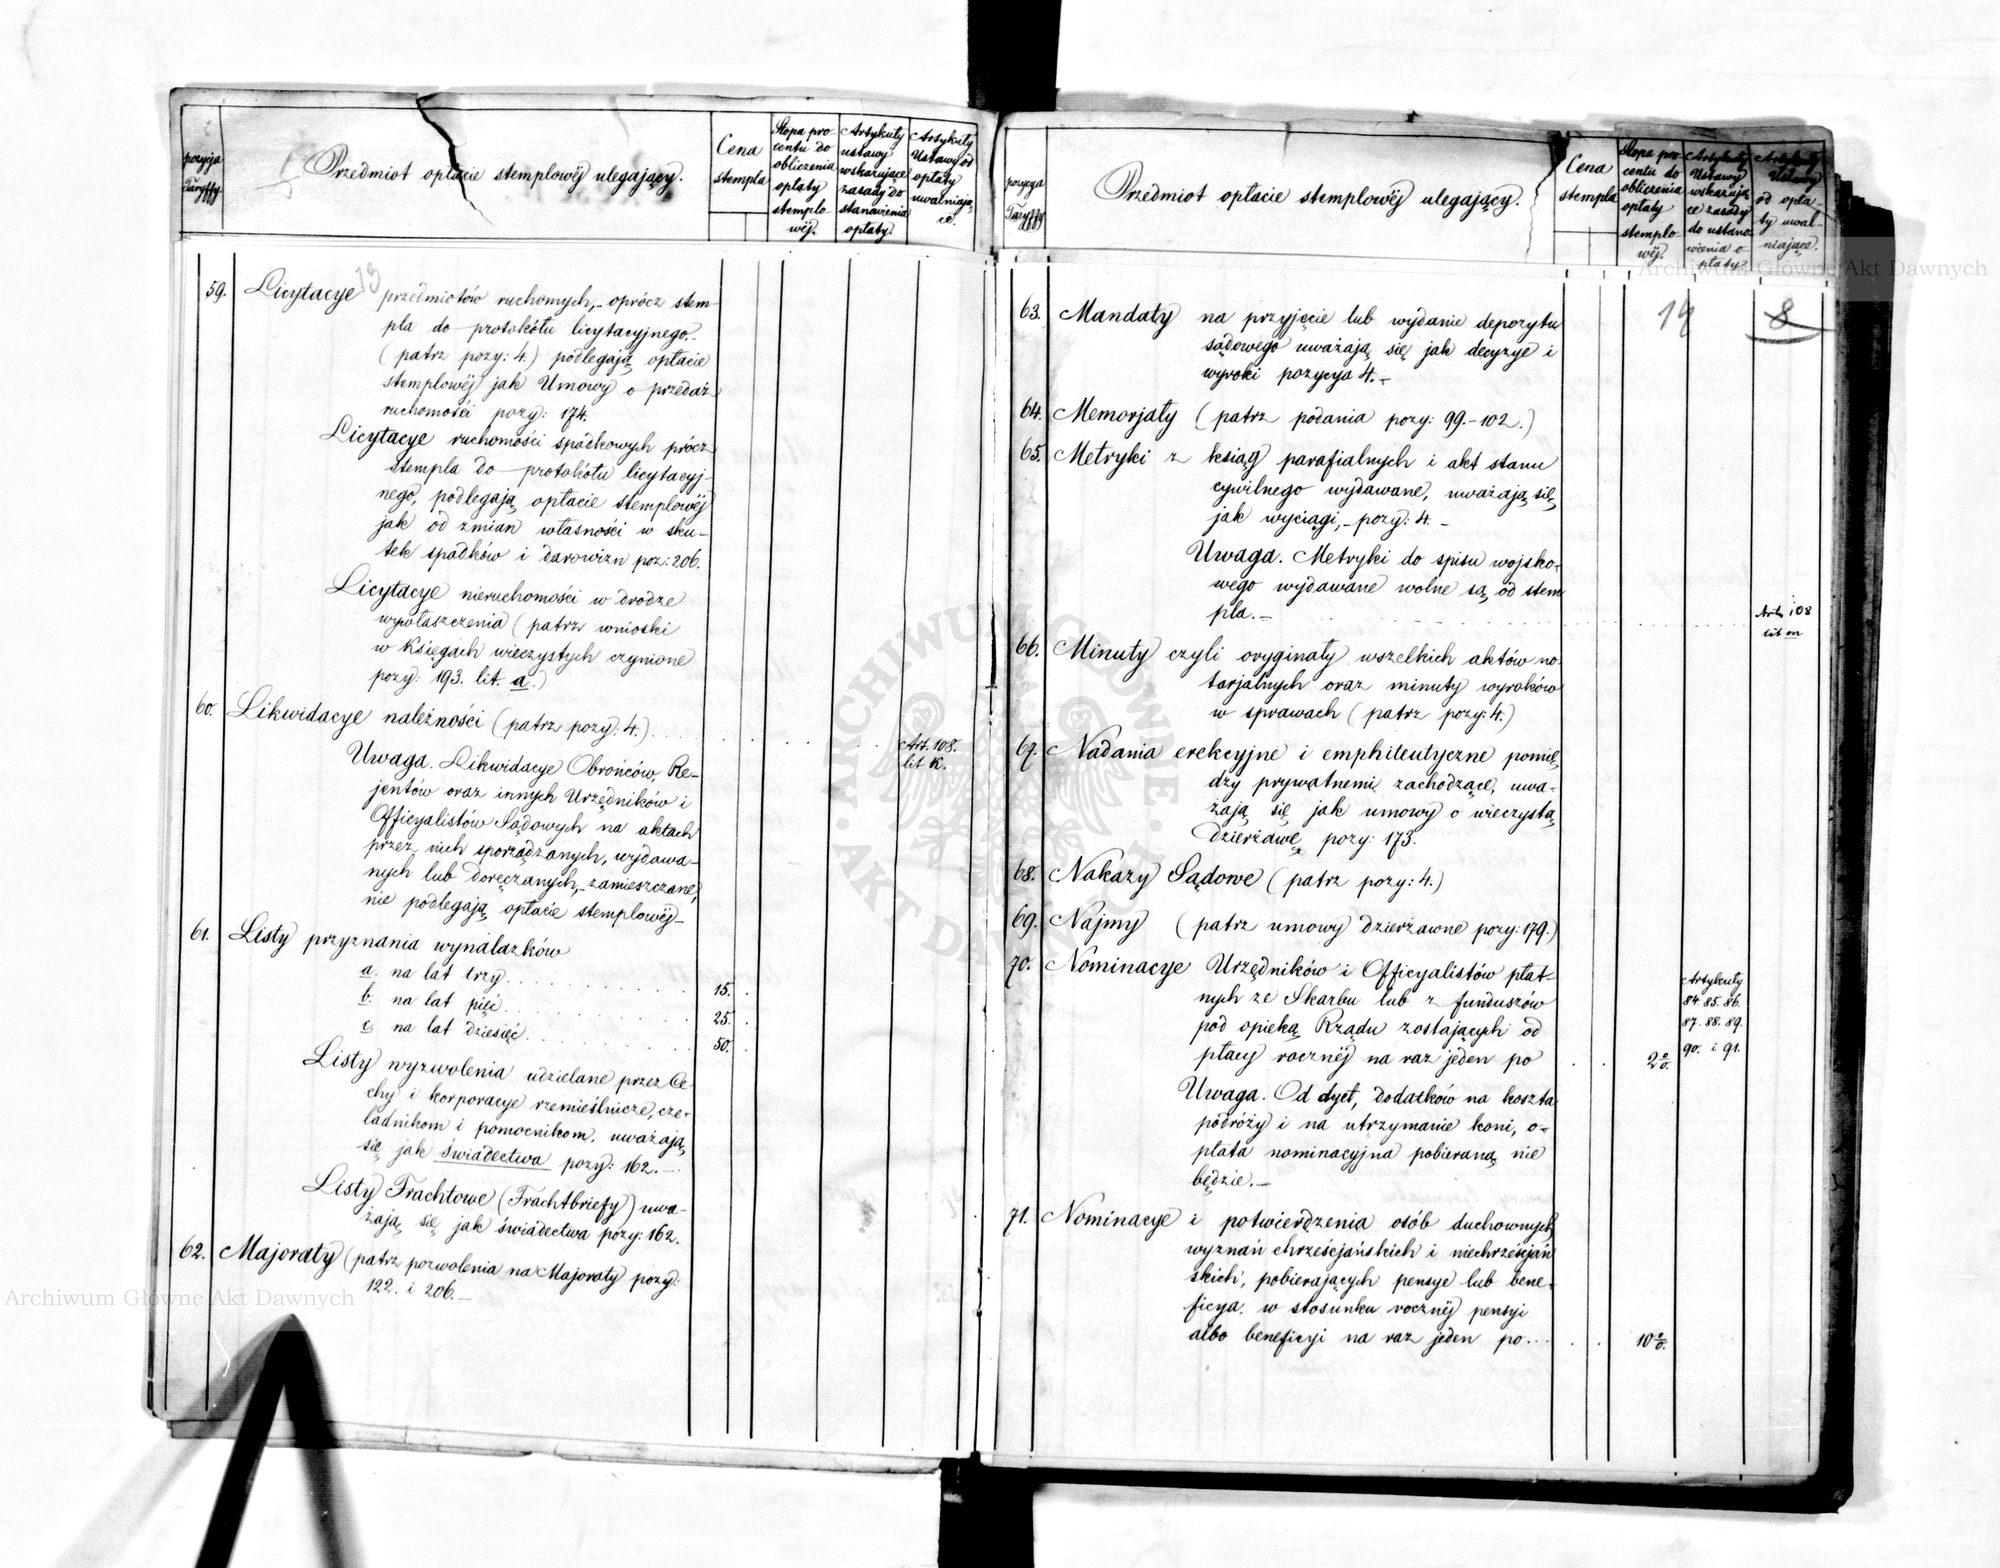 pozycja Taryffy.
Przedmiot opłacie stemplowéj ulegający.
Cena stempla
Stopa pro-
centu do
obliczenia
opłaty
stemplo-
wéj.
Artykuły
ustawy
wskazujące
zasady do
stanowienia
opłaty.
Artykuły
Ustawy od
opłaty
uwalniają-
ce.
59. Licytacye przedmiotów ruchomych, - oprócz stem-
pla do protokółu licytacyjnego. -
(patrz pozy: 4.) podlegają opłacie
stemplowéj jak Umowy o przedaż
ruchomości pozy: 174.
Licytacye ruchomości spadkowych prócz
stempla do protokółu licytacyj-
nego, podlegają opłacie stemplowéj
jak od zmian własności w sku-
tek spadków i darowizn poz: 206.
Licytacye nieruchomości w drodze
wywłaszczenia (patrz wnioski
w Księgach wieczystych czynione
pozy: 193. lit. a.)
60. Likwidacye należności (patrz pozy: 4.)
Art. 108.
lit K.
Uwaga. Likwidacye Obrońców, Re-
jentów oraz innych Urzędników i
Officyalistów Sądowych na aktach
przez nich sporządzanych, wydawa-
nych lub doręczanych, - zamieszczane,
nie podlegają opłacie stemplowéj -
61. Listy przyznania wynalazków
a. na lat trzy. 15.
b. na lat pięć. 25.
c. na lat dziesięć. 50.
Listy wyzwolenia udzielane przez Ce-
chy i korporacye rzemieślnicze, cze-
ladnikom i pomocnikom, uważają
się jak świadectwa pozy: 162. -
Listy Frachtowe (Frachtbriefy) uwa-
żają się jak świadectwa pozy: 162.
62. Majoraty (patrz pozwolenia na Majoraty pozy:
122. i 206. -
pozycya Taryffy
Przedmiot opłacie stemplowéj ulegający.
Cena stempla
Stopa pro-
centu do
obliczenia
opłaty
stemplo-
wéj.
Artykuły
Ustawy
wskazują-
ce zasady
do ustano-
wienia o-
płaty.
Artykuły
Ustawy
od opła-
ty uwal-
niające.
14
8
63. Mandaty na przyjęcie lub wydanie depozytu
sądowego uważają się jak decyzye i
wyroki pozycya 4. -
64. Memorjały (patrz podania pozy: 99. - 102.)
65. Metryki z ksiąg parafialnych i akt stanu
cywilnego wydawane, uważają się,
jak wyciągi, - pozy: 4. -
Uwaga. Metryki do spisu wojsko-
wego wydawane wolne są od stem-
pla. -
Art. 108
lit m
66. Minuty czyli oryginały wszelkich aktów no-
tarjalnych oraz minuty wyroków
w sprawach (patrz pozy: 4.)
67. Nadania erekcyjne i emphiteutyczne pomię-
dzy prywatnemi zachodzące, uwa-
żają się jak umowy o wieczystą
dzierżawę pozy: 173.
68. Nakazy Sądowe (patrz pozy: 4.)
69. Najmy (patrz umowy dzierżawne pozy: 179.)
70. Nominacye Urzędników i Officyalistów płat-
nych ze Skarbu lub z funduszów
pod opieką Rządu zostających od
płacy rocznéj na raz jeden po 2%.
Artykuły
84. 85. 86.
87. 88. 89.
90. i 91.
Uwaga. Od dyet, dodatków na koszta
podróży i na utrzymanie koni, o-
płata nominacyjna pobieraną nie
będzie. -
71. Nominacye i potwierdzenia osób duchownych
wyznań chrześcjańskich i niechrześcjań-
skich, pobierających pensye lub bene-
ficya, w stosunku rocznéj pensyi
albo beneficyi na raz jeden po... 10%.
ARCHIWUM GŁÓWNE AKT DAWNYCH
Archiwum Główne Akt Dawnych
Archiwum Główne Akt Dawnych